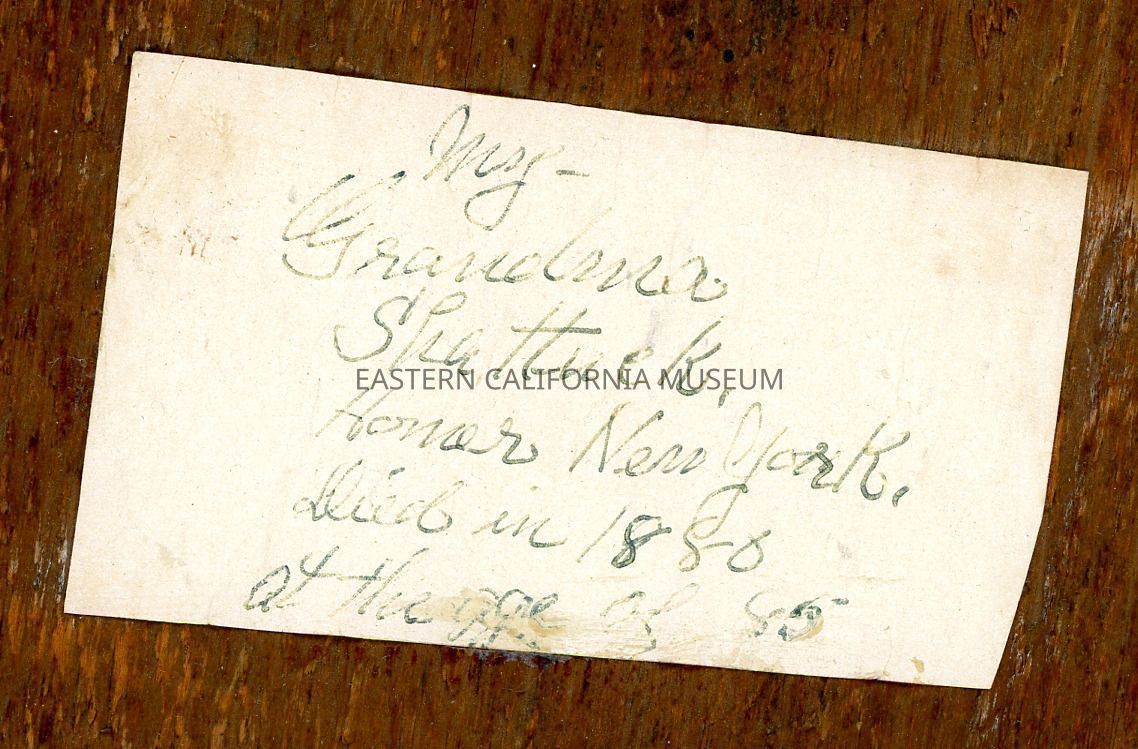 My-
Grandma
Shattuck,
EASTERN CALIFORNIA MUSEUM
Homer New York.
Died in 1880
at the age of 85